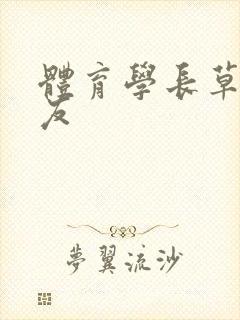 體育學長草
友
夢翼流沙